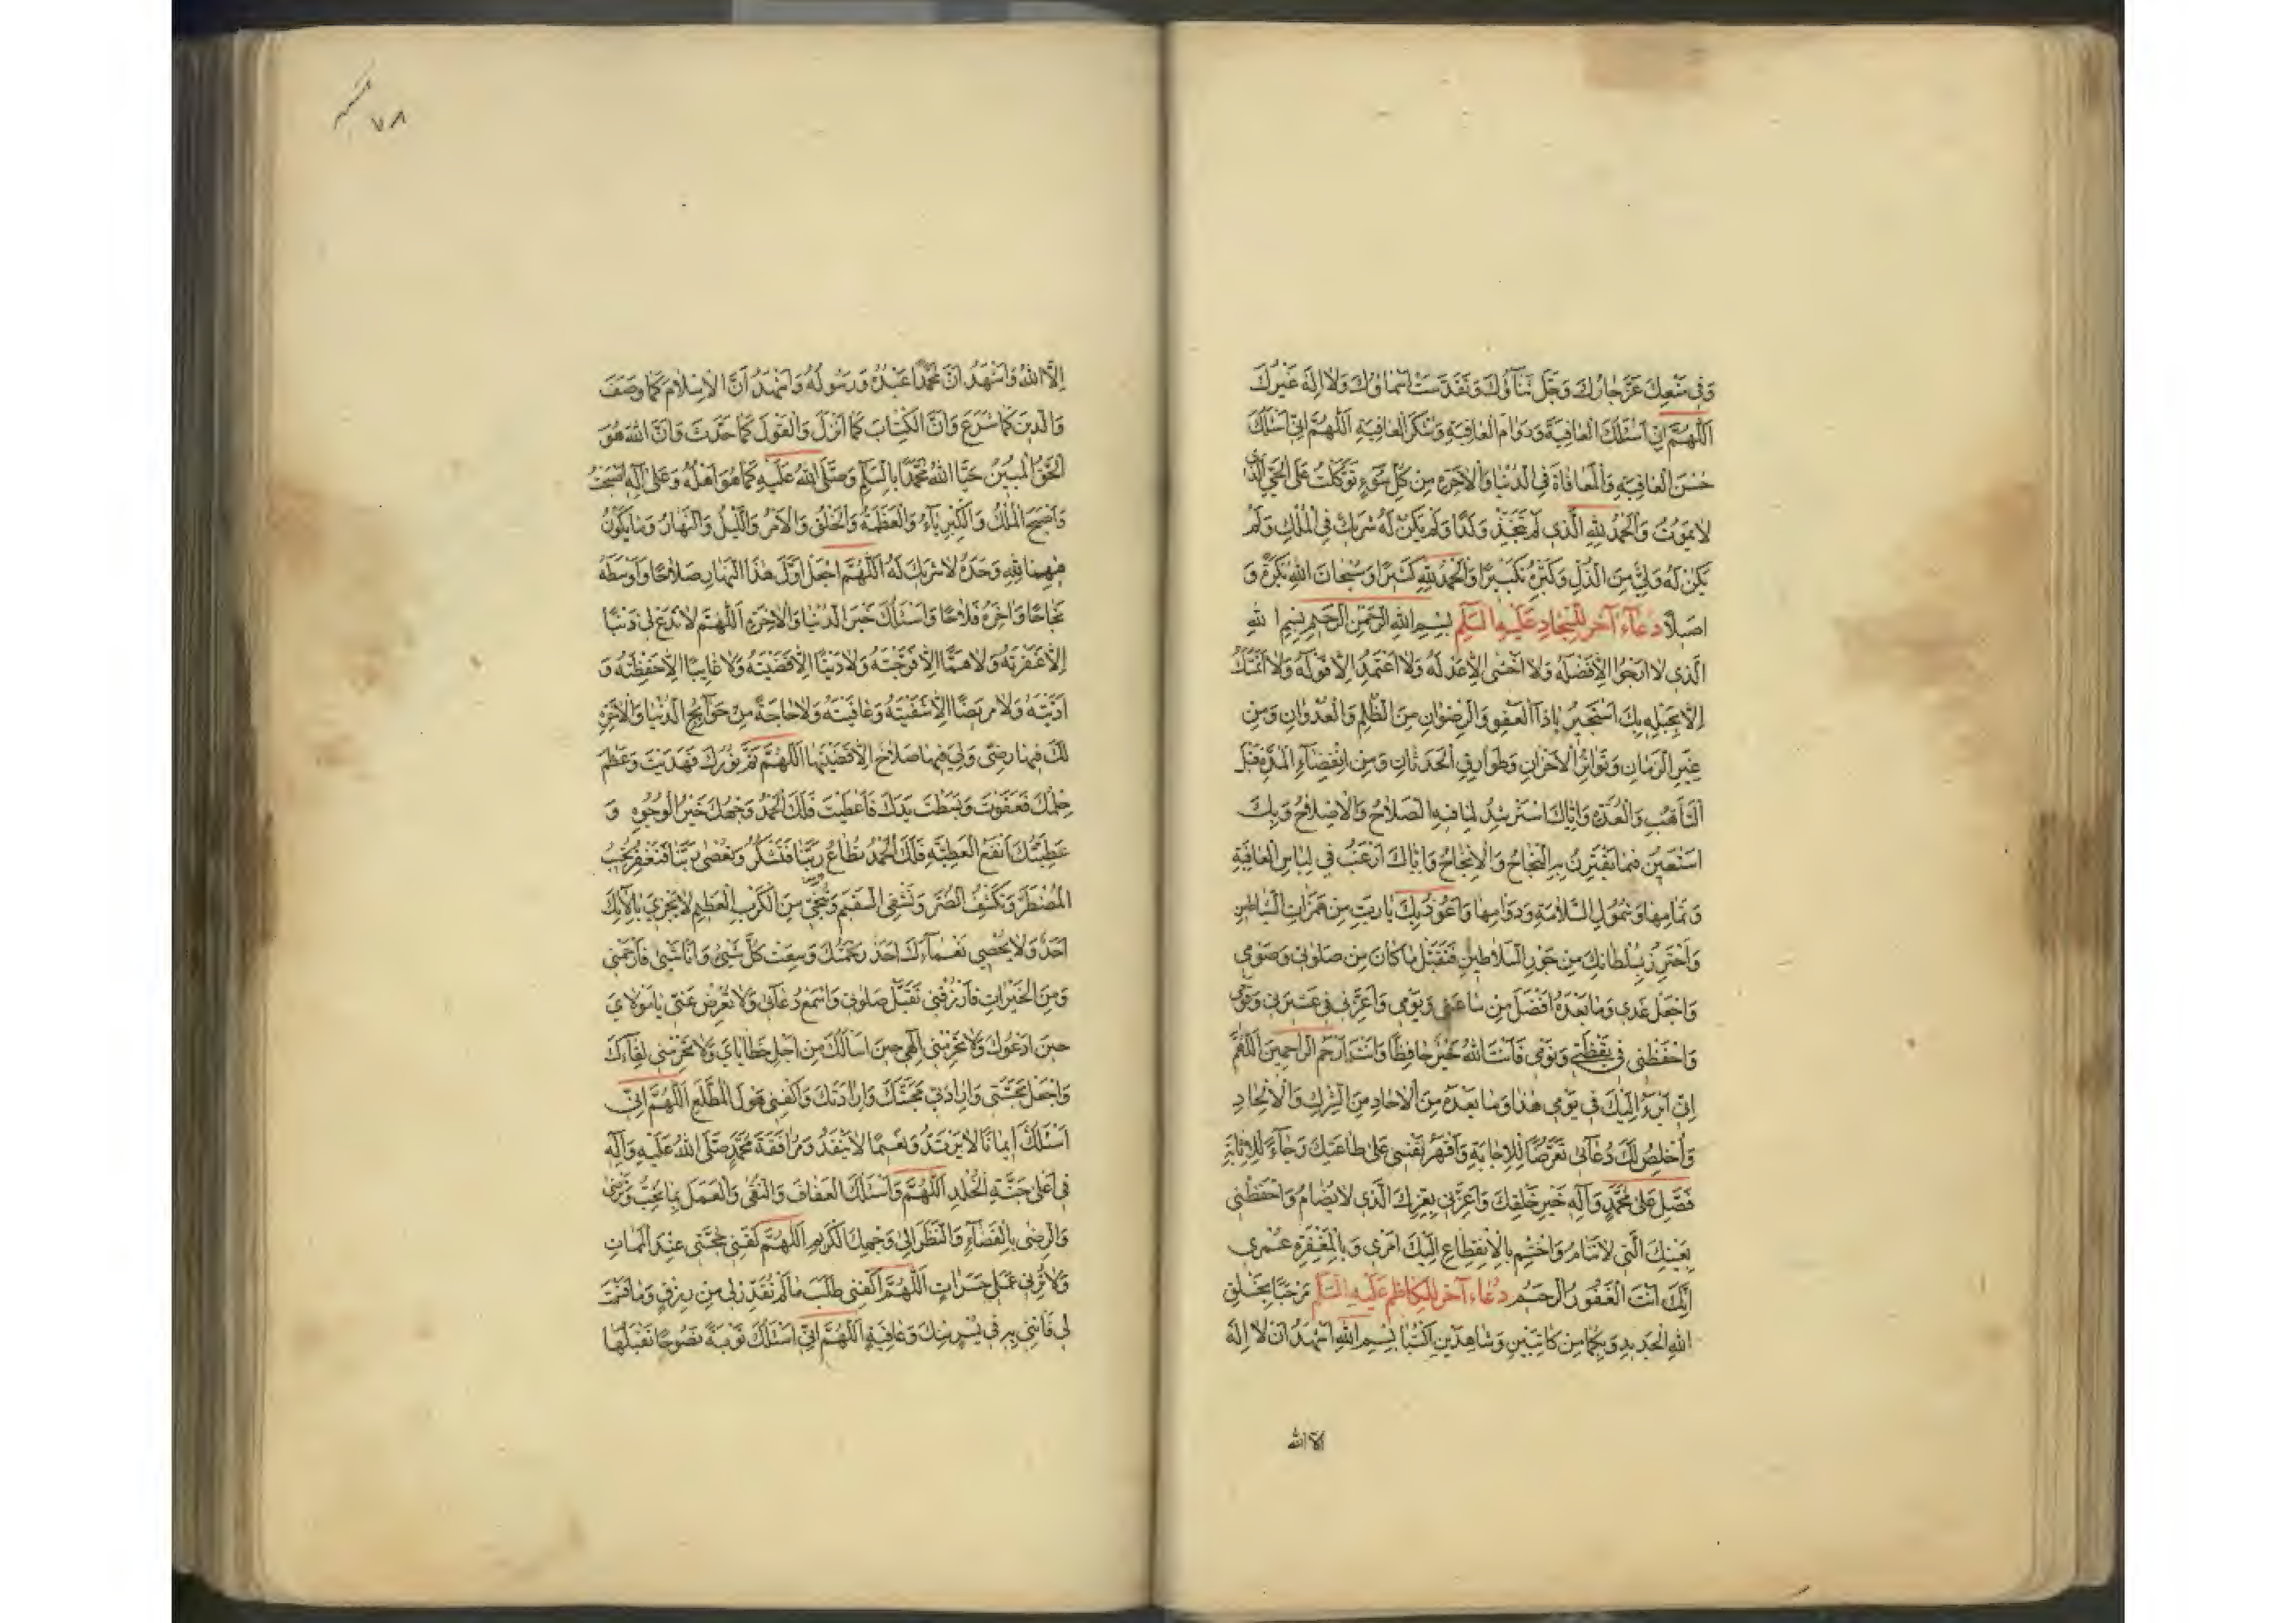 وَفِي مَنْعِكَ عَزَّ جَارُكَ وَجَلَّ ثَنَاؤُكَ وَتَقَدَّسَتْ اَسْمَاؤُكَ وَلَا اِلٰهَ غَيْرُكَ
اَللّٰهُمَّ اِنِّي اَسْئَلُكَ الْعَافِيَةَ وَدَوَامَ الْعَافِيَةِ وَشُكْرَ الْعَافِيَةِ اَللّٰهُمَّ اِنِّي اَسْئَلُكَ
حُسْنَ الْعَافِيَةِ وَالْمُعَافَاةَ فِي الدُّنْيَا وَالْاٰخِرَةِ مِنْ كُلِّ سُوءٍ تَوَكَّلْتُ عَلَى الْحَيِّ الَّذِي
لَا يَمُوتُ وَالْحَمْدُ لِلّٰهِ الَّذِي لَمْ يَتَّخِذْ وَلَدًا وَلَمْ يَكُنْ لَهُ شَرِيكٌ فِي الْمُلْكِ وَلَمْ
يَكُنْ لَهُ وَلِيٌّ مِنَ الذُّلِّ وَكَبِّرْهُ تَكْبِيرًا وَالْحَمْدُ لِلّٰهِ كَثِيرًا وَسُبْحَانَ اللّٰهِ بُكْرَةً وَ
اَصِيلًا دُعَاءٌ آخَرُ لِلسَّجَّادِ عَلَيْهِ السَّلَمُ بِسْمِ اللّٰهِ الرَّحْمٰنِ الرَّحِيمِ بِسْمِ اللّٰهِ
الَّذِي لَا اَرْجُوا اِلَّا فَضْلَهُ وَلَا اَخْشٰى اِلَّا عَدْلَهُ وَلَا اَعْتَمِدُ اِلَّا قَوْلَهُ وَلَا اَتَمَسَّكُ
اِلَّا بِحَبْلِهِ بِكَ اَسْتَجِيرُ يَا ذَا الْعَفْوِ وَالرِّضْوَانِ مِنَ الظُّلْمِ وَالْعُدْوَانِ وَمِنْ
غِيَرِ الزَّمَانِ وَتَوَاتُرِ الْاَحْزَانِ وَطَوَارِقِ الْحَدَثَانِ وَمِنِ انْقِضَاءِ الْمُدَّةِ قَبْلَ
التَّاَهُّبِ وَالْعُدَّةِ وَاِيَّاكَ اَسْتَرْشِدُ لِمَا فِيهِ الصَّلَاحُ وَالْاِصْلَاحُ وَبِكَ
اَسْتَعِينُ فِيمَا يَقْتَرِنُ بِهِ النَّجَاحُ وَالْاِنْجَاحُ وَاِيَّاكَ اَرْغَبُ فِي لِبَاسِ الْعَافِيَةِ
وَتَمَامِهَا وَشُمُولِ السَّلَامَةِ وَدَوَامِهَا وَاَعُوذُ بِكَ يَا رَبِّ مِنْ هَمَزَاتِ الشَّيَاطِينِ
وَاَحْتَرِزُ بِسُلْطَانِكَ مِنْ جَوْرِ السَّلَاطِينِ فَتَقَبَّلْ مَا كَانَ مِنْ صَلٰوتِي وَصَوْمِي
وَاجْعَلْ غَدِي وَمَا بَعْدَهُ اَفْضَلَ مِنْ سَاعَتِي وَيَوْمِي وَاَعِزَّنِي فِي عَشِيرَتِي وَقَوْمِي
وَاحْفَظْنِي فِي يَقْظَتِي وَنَوْمِي فَاَنْتَ اللّٰهُ خَيْرٌ حَافِظًا وَاَنْتَ اَرْحَمُ الرَّاحِمِينَ اَللّٰهُمَّ
اِنِّي اَبْرَءُ اِلَيْكَ فِي يَوْمِي هٰذَا وَمَا بَعْدَهُ مِنَ الْاٰحَادِ مِنَ الشِّرْكِ وَالْاِلْحَادِ
وَاُخْلِصُ لَكَ دُعَائِي تَعَرُّضًا لِلْاِجَابَةِ وَاَقْهَرُ نَفْسِي عَلٰى طَاعَتِكَ رَجَاءً لِلْاِثَابَةِ
فَصَلِّ عَلٰى مُحَمَّدٍ وَآلِهِ خَيْرِ خَلْقِكَ وَاَعِزَّنِي بِعِزِّكَ الَّذِي لَا يُضَامُ وَاحْفَظْنِي
بِعَيْنِكَ الَّتِي لَا تَنَامُ وَاخْتِمْ بِالْاِنْقِطَاعِ اِلَيْكَ اَمْرِي وَبِالْمَغْفِرَةِ عُمْرِي
اِنَّكَ اَنْتَ الْغَفُورُ الرَّحِيمُ دُعَاءٌ آخَرُ لِلْكَاظِمِ عَلَيْهِ السَّلَمُ مَرْحَبًا بِخَلْقِ
اللّٰهِ الْجَدِيدِ وَبِكُمَا مِنْ كَاتِبَيْنِ وَشَاهِدَيْنِ اُكْتُبَا بِسْمِ اللّٰهِ اَشْهَدُ اَنْ لَا اِلٰهَ
الا الله
٧٨
اِلَّا اللّٰهُ وَاَشْهَدُ اَنَّ مُحَمَّدًا عَبْدُهُ وَرَسُولُهُ وَاَشْهَدُ اَنَّ الْاِسْلَامَ كَمَا وَصَفَ
وَالدِّينَ كَمَا شَرَعَ وَاَنَّ الْكِتَابَ كَمَا اَنْزَلَ وَالْقَوْلَ كَمَا حَدَّثَ وَاَنَّ اللّٰهَ هُوَ
الْحَقُّ الْمُبِينُ حَيَّا اللّٰهُ مُحَمَّدًا بِالسَّلَمِ وَصَلَّى اللّٰهُ عَلَيْهِ كَمَا هُوَ اَهْلُهُ وَعَلٰى آلِهِ اَصْبَحْتُ
وَاَصْبَحَ الْمُلْكُ وَالْكِبْرِيَاءُ وَالْعَظَمَةُ وَالْخَلْقُ وَالْاَمْرُ وَاللَّيْلُ وَالنَّهَارُ وَمَا يَكُونُ
فِيهِمَا لِلّٰهِ وَحْدَهُ لَا شَرِيكَ لَهُ اَللّٰهُمَّ اجْعَلْ اَوَّلَ هٰذَا النَّهَارِ صَلَاحًا وَاَوْسَطَهُ
نَجَاحًا وَاٰخِرَهُ فَلَاحًا وَاَسْئَلُكَ خَيْرَ الدُّنْيَا وَالْاٰخِرَةِ اَللّٰهُمَّ لَا تَدَعْ لِي ذَنْبًا
اِلَّا غَفَرْتَهُ وَلَا هَمًّا اِلَّا فَرَّجْتَهُ وَلَا دَيْنًا اِلَّا قَضَيْتَهُ وَلَا غَايِبًا اِلَّا حَفِظْتَهُ وَ
اَدَّيْتَهُ وَلَا مَرِيضًا اِلَّا شَفَيْتَهُ وَعَافَيْتَهُ وَلَا حَاجَةً مِنْ حَوَائِجِ الدُّنْيَا وَالْاٰخِرَةِ
لَكَ فِيهَا رِضًى وَلِيَ فِيهَا صَلَاحٌ اِلَّا قَضَيْتَهَا اَللّٰهُمَّ تَمَّ نُورُكَ فَهَدَيْتَ وَعَظُمَ
حِلْمُكَ فَعَفَوْتَ وَبَسَطْتَ يَدَكَ فَاَعْطَيْتَ فَلَكَ الْحَمْدُ وَجْهُكَ خَيْرُ الْوُجُوهِ وَ
عَطِيَّتُكَ اَنْفَعُ الْعَطِيَّةِ فَلَكَ الْحَمْدُ تُطَاعُ رَبَّنَا فَتَشْكُرُ وَتُعْصٰى رَبَّنَا فَتَغْفِرُ تُجِيبُ
الْمُضْطَرَّ وَتَكْشِفُ الضُّرَّ وَتَشْفِي السَّقِيمَ وَتُنْجِي مِنَ الْكَرْبِ الْعَظِيمِ لَا يَجْزِي بِاٰلَائِكَ
اَحَدٌ وَلَا يُحْصِي نَعْمَاءَكَ اَحَدٌ رَحْمَتُكَ وَسِعَتْ كُلَّ شَيْءٍ وَاَنَا شَيْءٌ فَارْحَمْنِي
وَمِنَ الْخَيْرَاتِ فَارْزُقْنِي تَقَبَّلْ صَلٰوتِي وَاسْمَعْ دُعَائِي وَلَا تُعْرِضْ عَنِّي يَا مَوْلَايَ
حِينَ اَدْعُوكَ وَلَا تَحْرِمْنِي اِلٰهِي حِينَ اَسْاَلُكَ مِنْ اَجْلِ خَطَايَايَ وَلَا تَحْرِمْنِي لِقَاءَكَ
وَاجْعَلْ مَحَبَّتِي وَاِرَادَتِي مَحَبَّتَكَ وَاِرَادَتَكَ وَاكْفِنِي هَوْلَ الْمُطَّلَعِ اَللّٰهُمَّ اِنِّي
اَسْئَلُكَ اِيمَانًا لَا يَرْتَدُّ وَنَعِيمًا لَا يَنْفَدُ وَمُرَافَقَةَ مُحَمَّدٍ صَلَّى اللّٰهُ عَلَيْهِ وَآلِهِ
فِي اَعْلٰى جَنَّةِ الْخُلْدِ اَللّٰهُمَّ وَاَسْئَلُكَ الْعَفَافَ وَالتُّقٰى وَالْعَمَلَ بِمَا تُحِبُّ وَتَرْضٰى
وَالرِّضٰى بِالْقَضَاءِ وَالنَّظَرَ اِلٰى وَجْهِكَ الْكَرِيمِ اَللّٰهُمَّ لَقِّنِي حُجَّتِي عِنْدَ الْمَمَاتِ
وَلَا تُرِنِي عَمَلِي حَسَرَاتٍ اَللّٰهُمَّ اكْفِنِي طَلَبَ مَا لَمْ تُقَدِّرْ لِي مِنْ رِزْقٍ وَمَا قَسَمْتَ
لِي فَاْتِنِي بِهِ فِي يُسْرٍ مِنْكَ وَعَافِيَةٍ اَللّٰهُمَّ اِنِّي اَسْئَلُكَ تَوْبَةً نَصُوحًا تَقْبَلُهَا